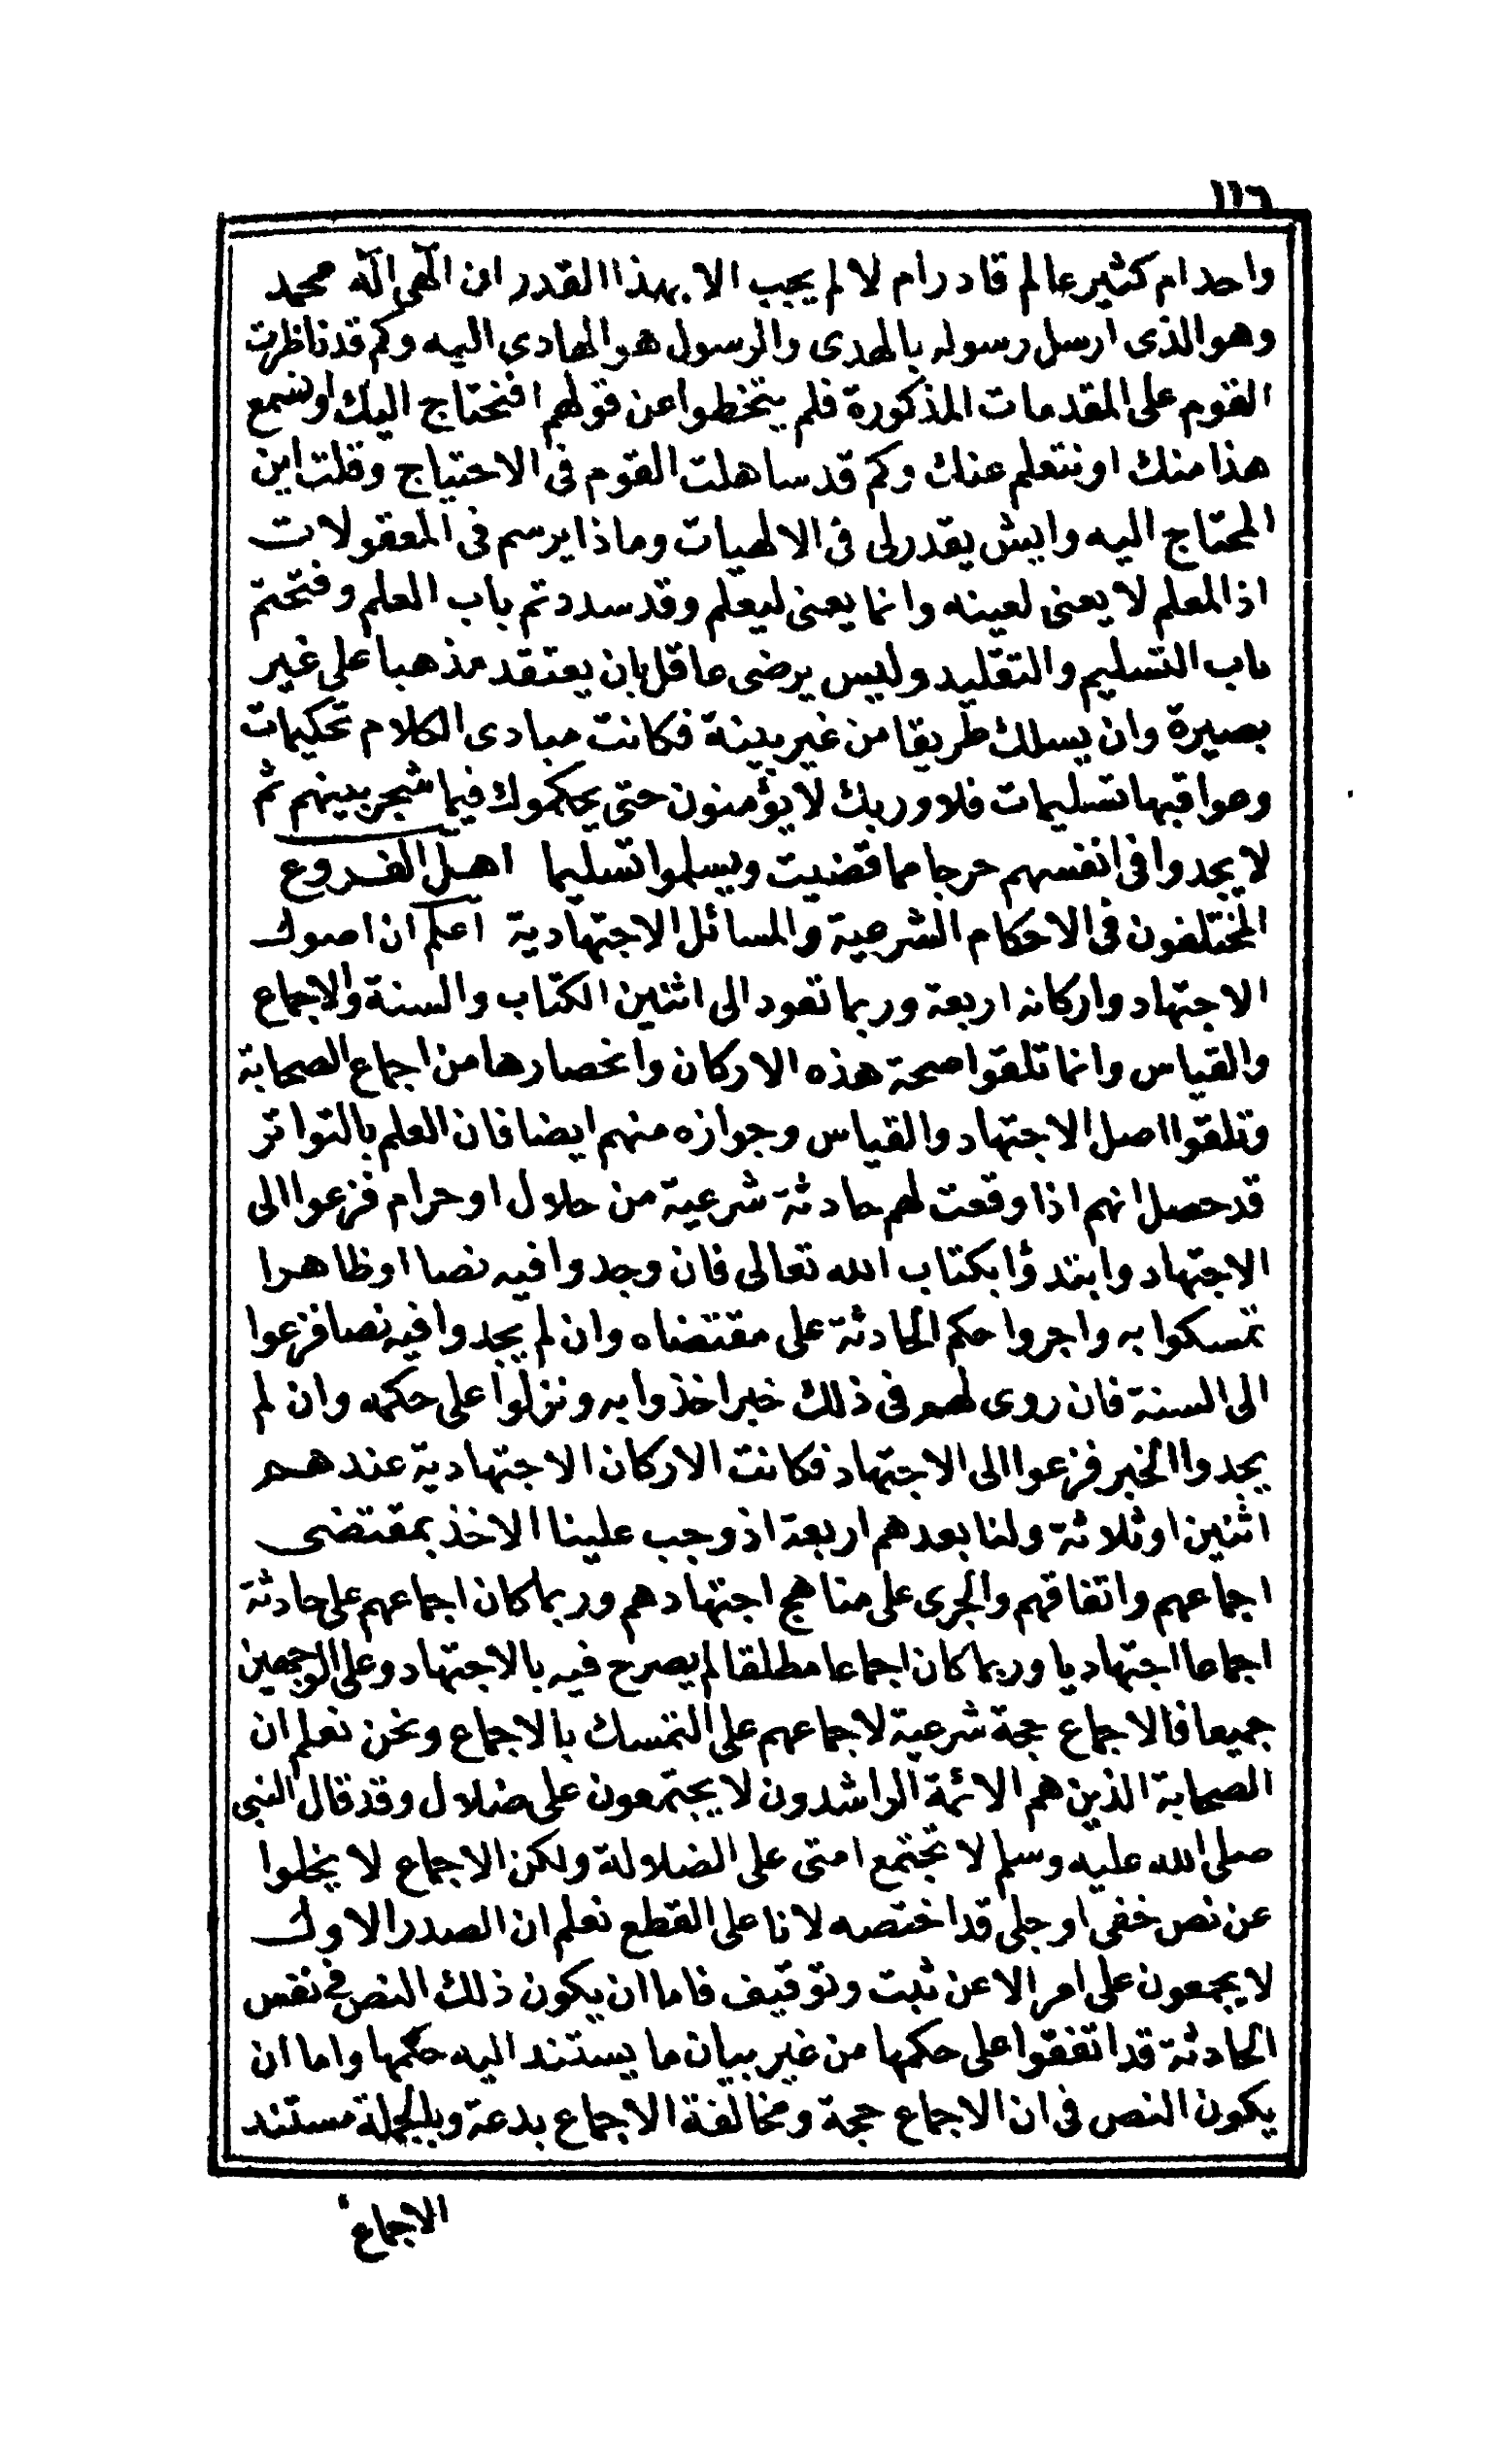 ١١٦
واحد ام كثير عالم قادر ام لا لم يجب الا بهذا القدر ان الهى اله محمد
وهو الذى ارسل رسوله بالهدى والرسول هو الهادى اليه وكم قد ناظرت
القوم على المقدمات المذكورة فلم يتخطوا عن قولهم افنحتاج اليك او نسمع
هذا منك او نتعلم عنك وكم قد ساهلت القوم فى الاحتياج وقلت اين
المحتاج اليه وايش يقدر لى فى الالهيات وماذا يرسم فى المعقولات
اذ المعلم لا يعنى لعينه وانما يعنى ليعلم وقد سددتم باب العلم وفتحتم
باب التسليم والتقليد وليس يرضى عاقل بان يعتقد مذهبا على غير
بصيرة وان يسلك طريقا من غير بينة فكانت مبادى الكلام تحكيمات
وعواقبها تسليمات فلا وربك لا يؤمنون حتى يحكموك فيما شجر بينهم ثم
لا يجدوا فى انفسهم حرجا مما قضيت ويسلموا تسليما اهل الفروع
المختلفون فى الاحكام الشرعية والمسائل الاجتهادية اعلم ان اصول
الاجتهاد واركانه اربعة وربما تعود الى اثنين الكتاب والسنة والاجماع
والقياس وانما تلقوا صحة هذه الاركان وانحصارها من اجماع الصحابة
وتلقوا اصل الاجتهاد والقياس وجوازه منهم ايضا فان العلم بالتواتر
قد حصل انهم اذا وقعت لهم حادثة شرعية من حلال او حرام فزعوا الى
الاجتهاد وابتدؤا بكتاب الله تعالى فان وجدوا فيه نصا او ظاهرا
تمسكوا به واجروا حكم الحادثة على مقتضاه وان لم يجدوا فيه نصا فزعوا
الى السنة فان روى لهم فى ذلك خبر اخذوا به ونزلوا على حكمه وان لم
يجدوا الخبر فزعوا الى الاجتهاد فكانت الاركان الاجتهادية عندهم
اثنين او ثلاثة ولنا بعدهم اربعة اذ وجب علينا الاخذ بمقتضى
اجماعهم واتفاقهم والجرى على مناهج اجتهادهم وربما كان اجماعهم على حادثة
اجماعا اجتهاديا وربما كان اجماعا مطلقا لم يصرح فيه بالاجتهاد وعلى الوجهين
جميعا فالاجماع حجة شرعية لاجماعهم على التمسك بالاجماع ونحن نعلم ان
الصحابة الذين هم الائمة الراشدون لا يجتمعون على ضلال وقد قال النبى
صلى الله عليه وسلم لا تجتمع امتى على الضلالة ولكن الاجماع لا يخلوا
عن نص خفى او جلى قد اختصه لانا على القطع نعلم ان الصدر الاول
لا يجمعون على امر الا عن ثبت وتوقيف فاما ان يكون ذلك النص فى نفس
الحادثة قد اتفقوا على حكمها من غير بيان ما يستند اليه حكمها واما ان
يكون النص فى ان الاجماع حجة ومخالفة الاجماع بدعة وبالجملة مستند
الاجماع